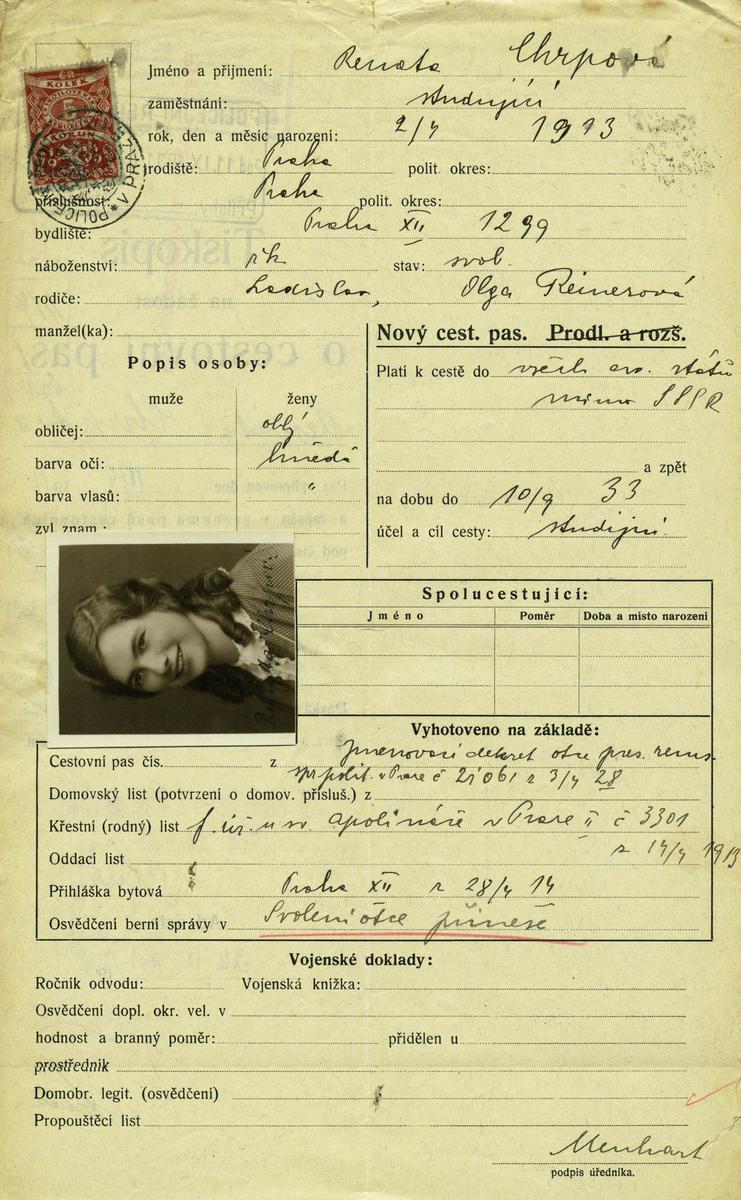 KOLEK
5
KORUN
POLICEJNÍ
V PRAZE
Jméno a příjmení: Renata Chrpová
zaměstnání: studující
rok, den a měsíc narození: 2/4 1913
rodiště: Praha polit. okres:
příslušnost: Praha polit. okres:
bydliště: Praha XII 1299
náboženství: řk stav: svob.
rodiče: Ladislav, Olga Reinerová
manžel(ka):
Nový cest. pas. Prodl. a rozš.
Popis osoby:
muže ženy
obličej: oblý
barva očí: hnědá
barva vlasů: "
zvl. znam.:
Platí k cestě do všech ev. států
mimo SSSR
a zpět
na dobu do 10/9 33
účel a cíl cesty: studijní.
Renata Chrpová
Spolucestující:
Jméno Poměr Doba a místo narození
Vyhotoveno na základě:
Cestovní pas čís. z Jmenovací dekret otce pres. zems.
spr. polit. v Praze č 21061 z 3/4 28
Domovský list (potvrzení o domov. přísluš.) z
Křestní (rodný) list f. úř. u sv. Apolináře v Praze II č 3301
Oddací list z 14/4 1913
Přihláška bytová Praha XII z 28/4 14
Osvědčení berní správy v Svolení otce přinese
Vojenské doklady:
Ročník odvodu: Vojenská knížka:
Osvědčení dopl. okr. vel. v
hodnost a branný poměr: přidělen u
prostředník
Domobr. legit. (osvědčení)
Propouštěcí list
Menhart
podpis úředníka.